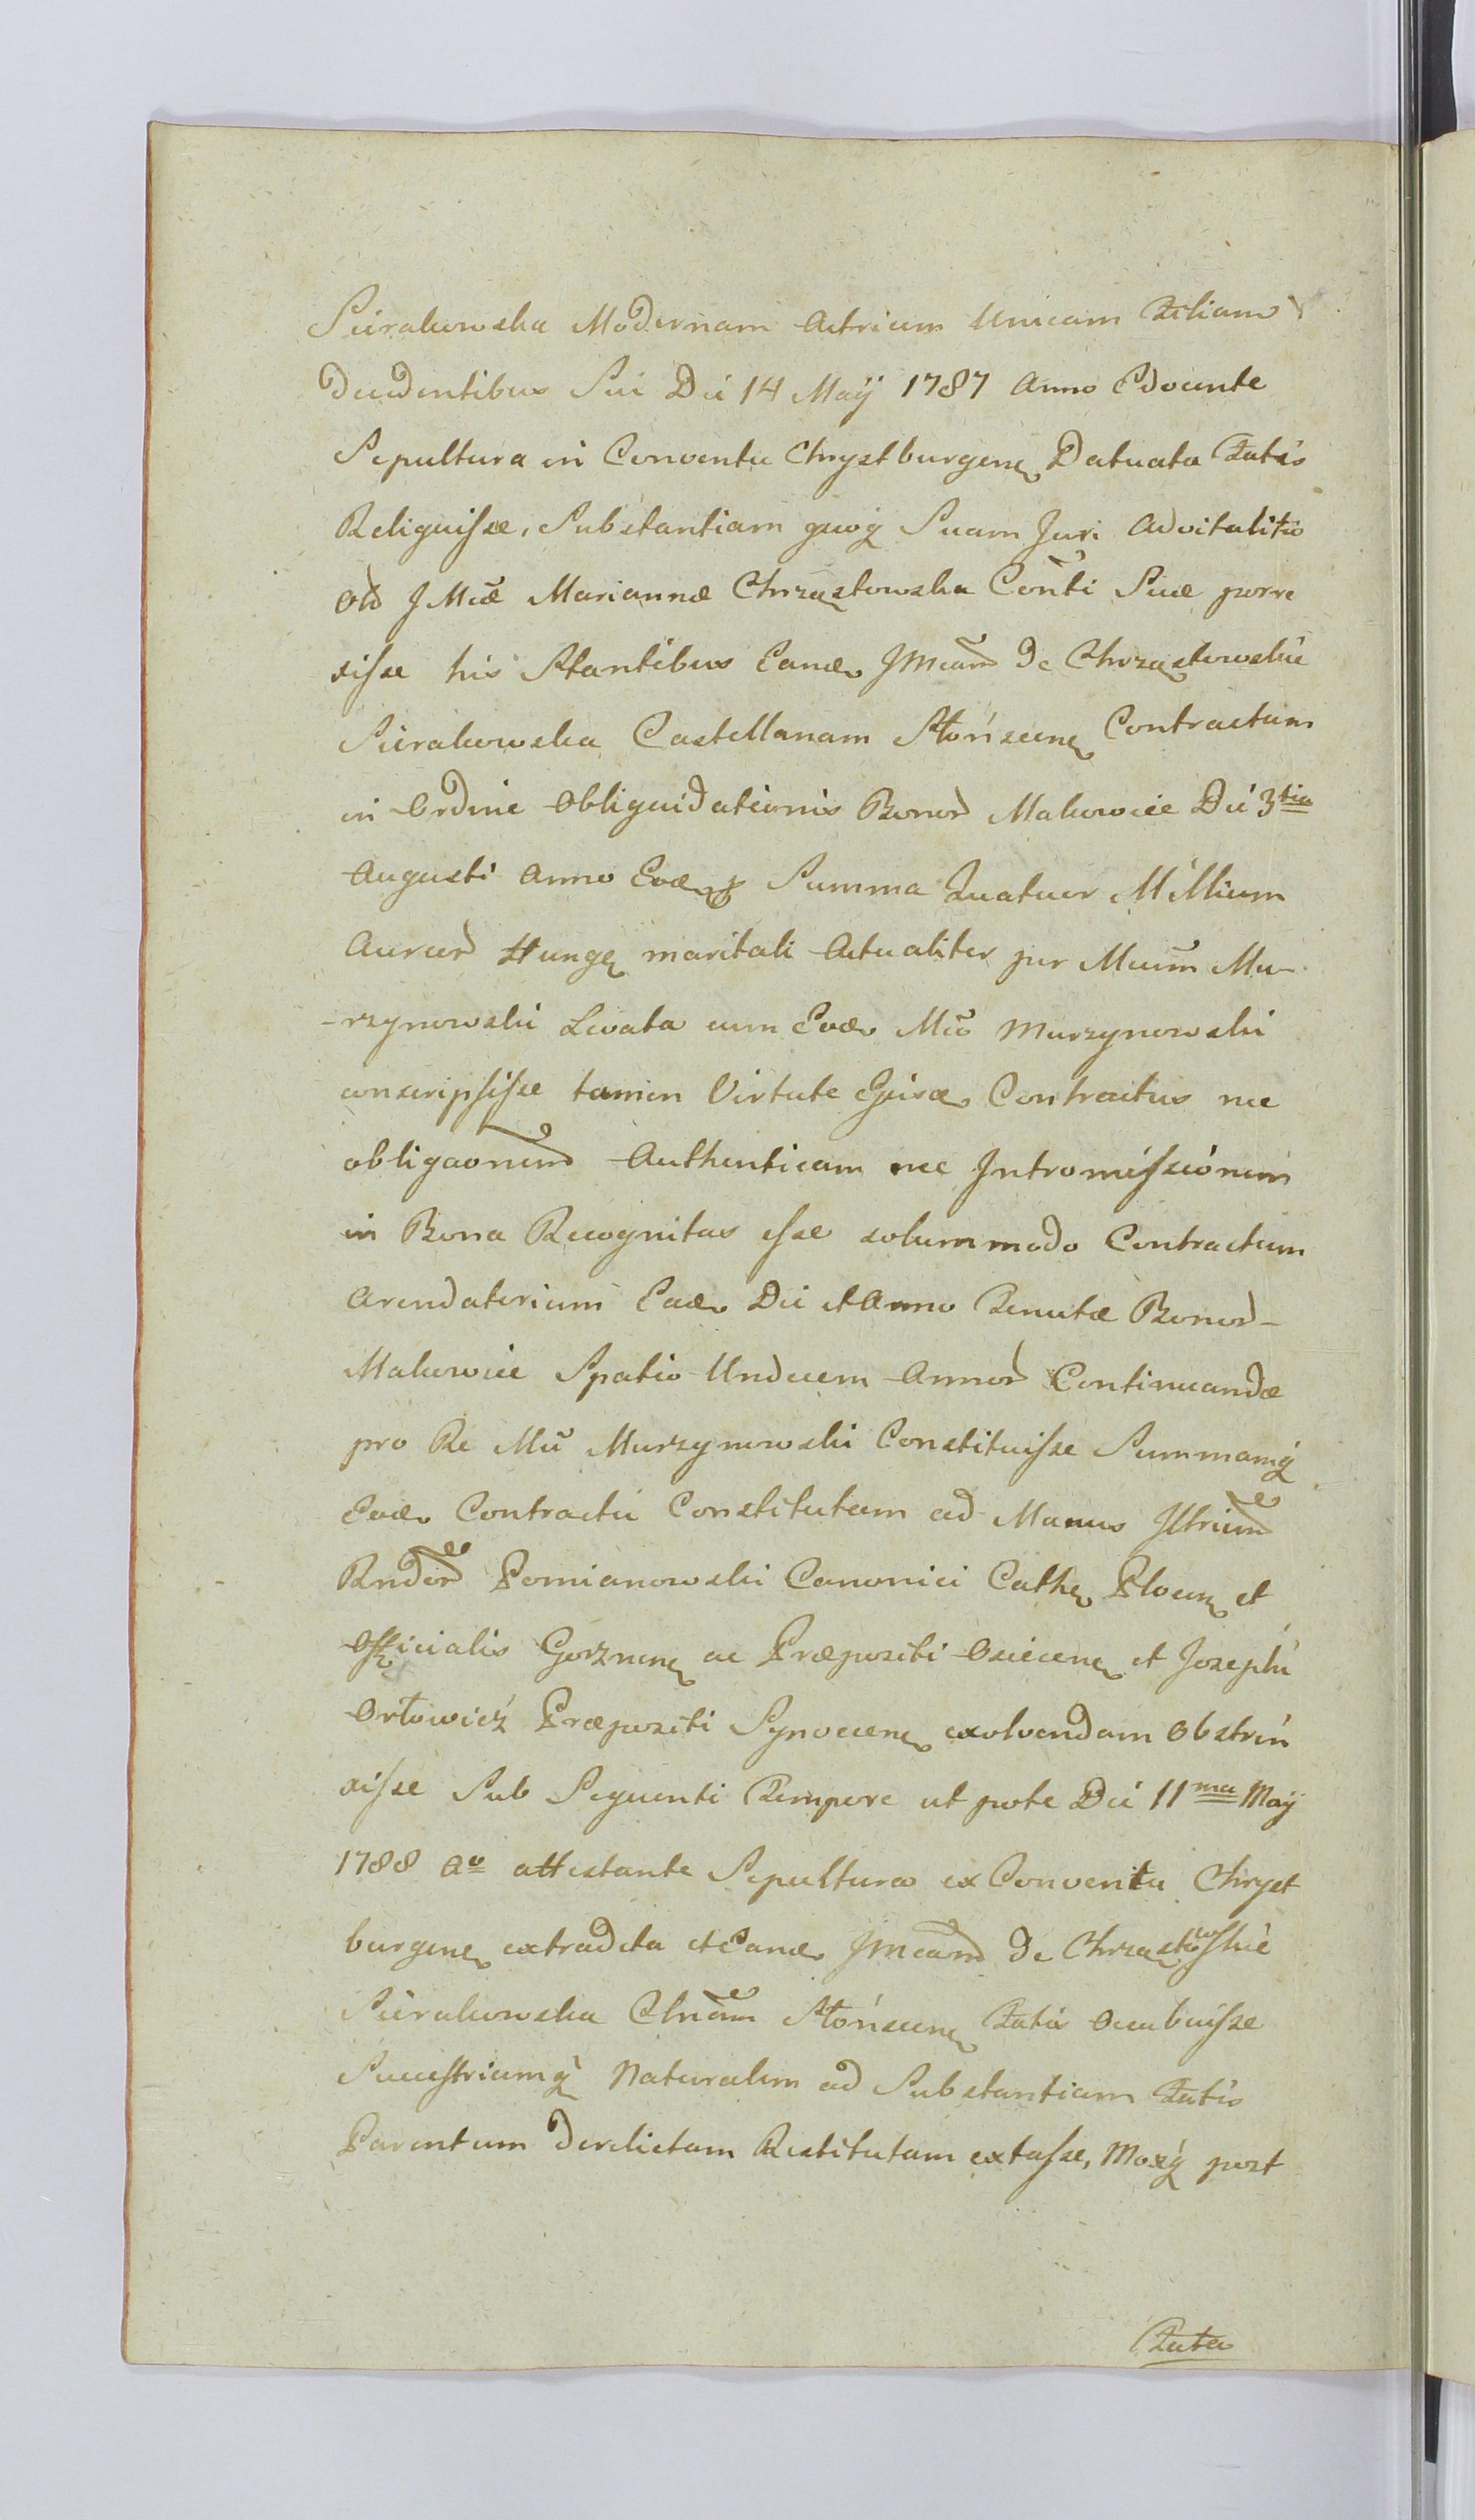 Sierakowska Modernam Actricem Unicam Filiam
Decedentibus Sui Die 14 Maÿ 1787 Anno Edocente
Sepultura in Conventu Chrystburgen Datuata Fatis
Reliquisse, Substantiam quoq Suam Juri Advitalitio
Olĩ JMcæ Mariannæ Chrząstowska Conti Suæ porre
xisse his Stantibus Eande JMcam De Chrząstowskie
Sierakowska Castellanam Słońscen Contractum
in Ordine Obliquidationis Bonor Makowiec Die 3tia
Augusti Anno Eode Summa Quatuor Millium
Aureor Hung maritali Actualiter per Mcum Mu-
-rzynowski Levata cum Eode Mco Murzynowski
conscripsisse tamen Virtute Ejusde Contractus nec
obligaonem Authenticam nec Intromissionem
in Bona Recognitas esse solummodo Contractum
Arendatorium Eade Die et Anno Tenutæ Bonor-
Makowiec Spatio Undecem Annor Continuandæ
pro Re Mci Murzynowski Constituisse Summamq
Eode Contractu Constitutam ad Manus Jltrium
Rndor Pomianowski Canonici Cathe Plocen et
Officialis Gorznen ac Præpositi Osiecen et Josephi
Orłowicz Præpositi Synvecen exolvendam Obstrin
xisse Sub Sequenti Tempore ut pote Die 11ma Maÿ
1788 Ao attestante Sepultura ex Conventu Chryst
burgen extradita et Eande JMcam De Chrząstowskie
Sierakowska Ctnam Słońscen Fatis Occubuisse
Successtricemq Naturalem ad Substantiam Fatis
Parentum derelictam Restitutam extasse, Moxq post
Fata